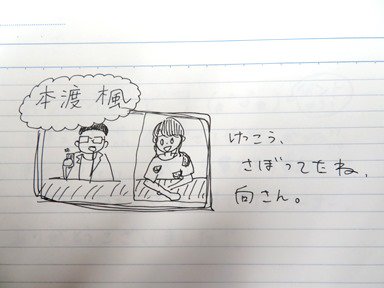 本渡 楓
けっこう、
さぼってたね、
向さん。